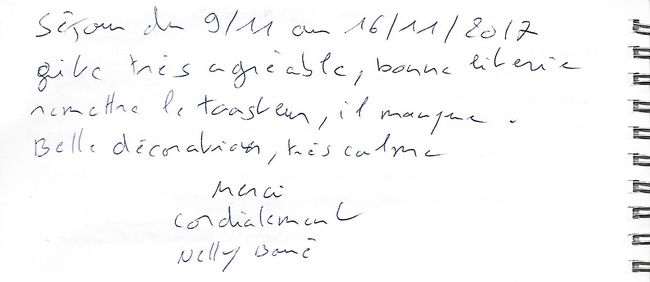 Séjour du 9/11 au 16/11/2017
gîte très agréable, bonne literie
remettre le toasteur, il manque.
Belle décoration, très calme
Merci
Cordialement
Nelly